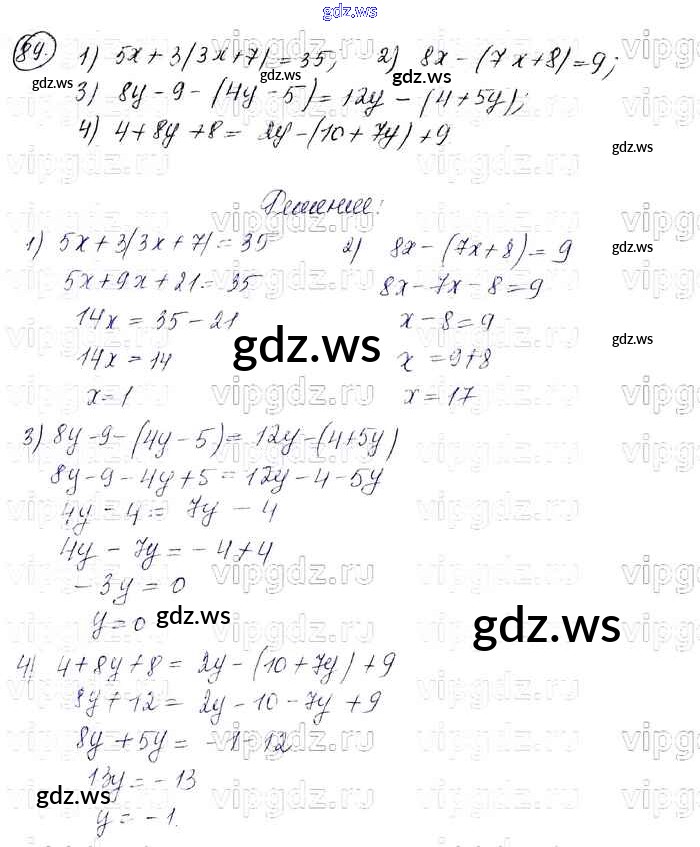 gdz.ws
89. 1) 5x + 3(3x + 7) = 35; 2) 8x - (7x + 8) = 9;
3) 8y - 9 - (4y - 5) = 12y - (4 + 5y);
4) 4 + 8y + 8 = 2y - (10 + 7y) + 9
Решение:
1) 5x + 3(3x + 7) = 35 2) 8x - (7x + 8) = 9
5x + 9x + 21 = 35 8x - 7x - 8 = 9
14x = 35 - 21 x - 8 = 9
14x = 14 x = 9 + 8
x = 1 x = 17
gdz.ws
3) 8y - 9 - (4y - 5) = 12y - (4 + 5y)
8y - 9 - 4y + 5 = 12y - 4 - 5y
4y - 4 = 7y - 4
4y - 7y = -4 + 4
-3y = 0
y = 0 gdz.ws
4) 4 + 8y + 8 = 2y - (10 + 7y) + 9
8y + 12 = 2y - 10 - 7y + 9
8y + 5y = -1 - 12
13y = -13
gdz.ws
y = -1.
vipgdz.ru